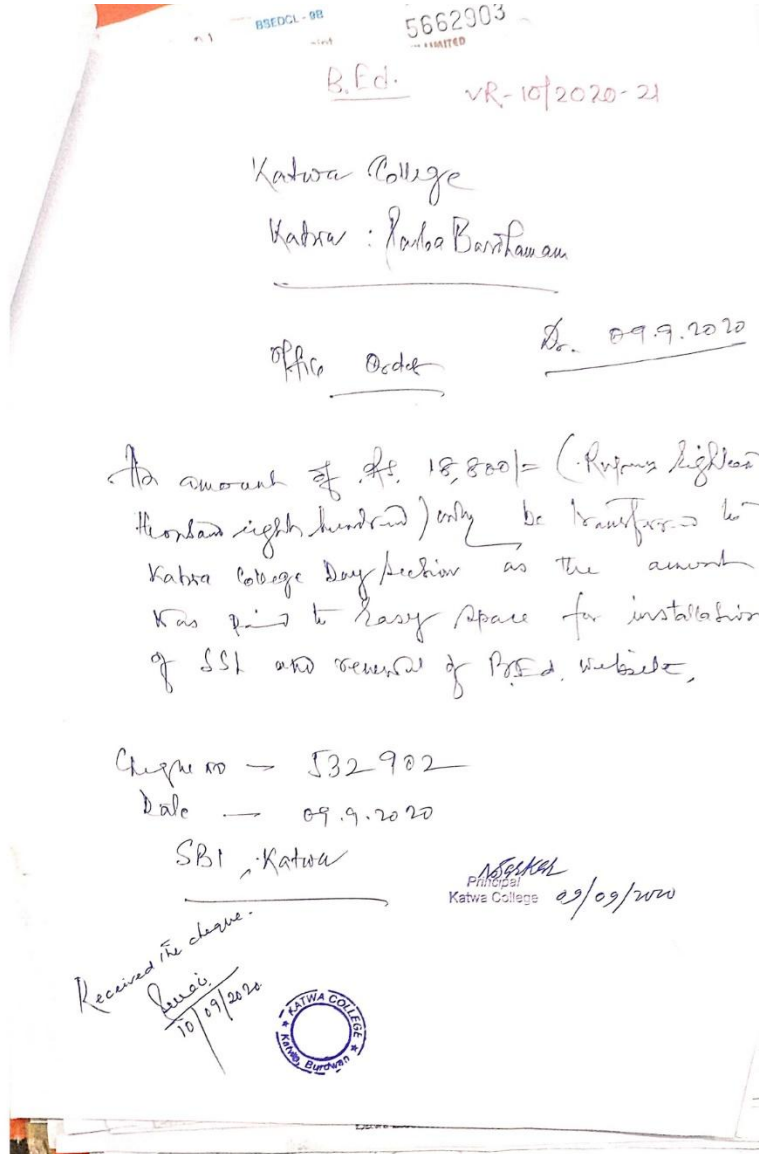 BSEDCL - 9B
5662903
LIMITED
B.Ed.
VR-10/2020-21
Katwa College
Katwa : Purba Bardhaman
Office Order
Dt. 09.9.2020
An amount of Rs. 18,800/= (Rupees Eighteen
thousand eight hundred) only be transferred to
Katwa College Day Section as the amount
was paid to Easy Space for installation
of SSL and renewal of B.Ed. website.
Cheque no — 532902
Date — 09.9.2020
SBI, Katwa
Principal
Katwa College 09/09/2020
Received the cheque.
10/09/2020
KATWA COLLEGE
Katwa, Burdwan